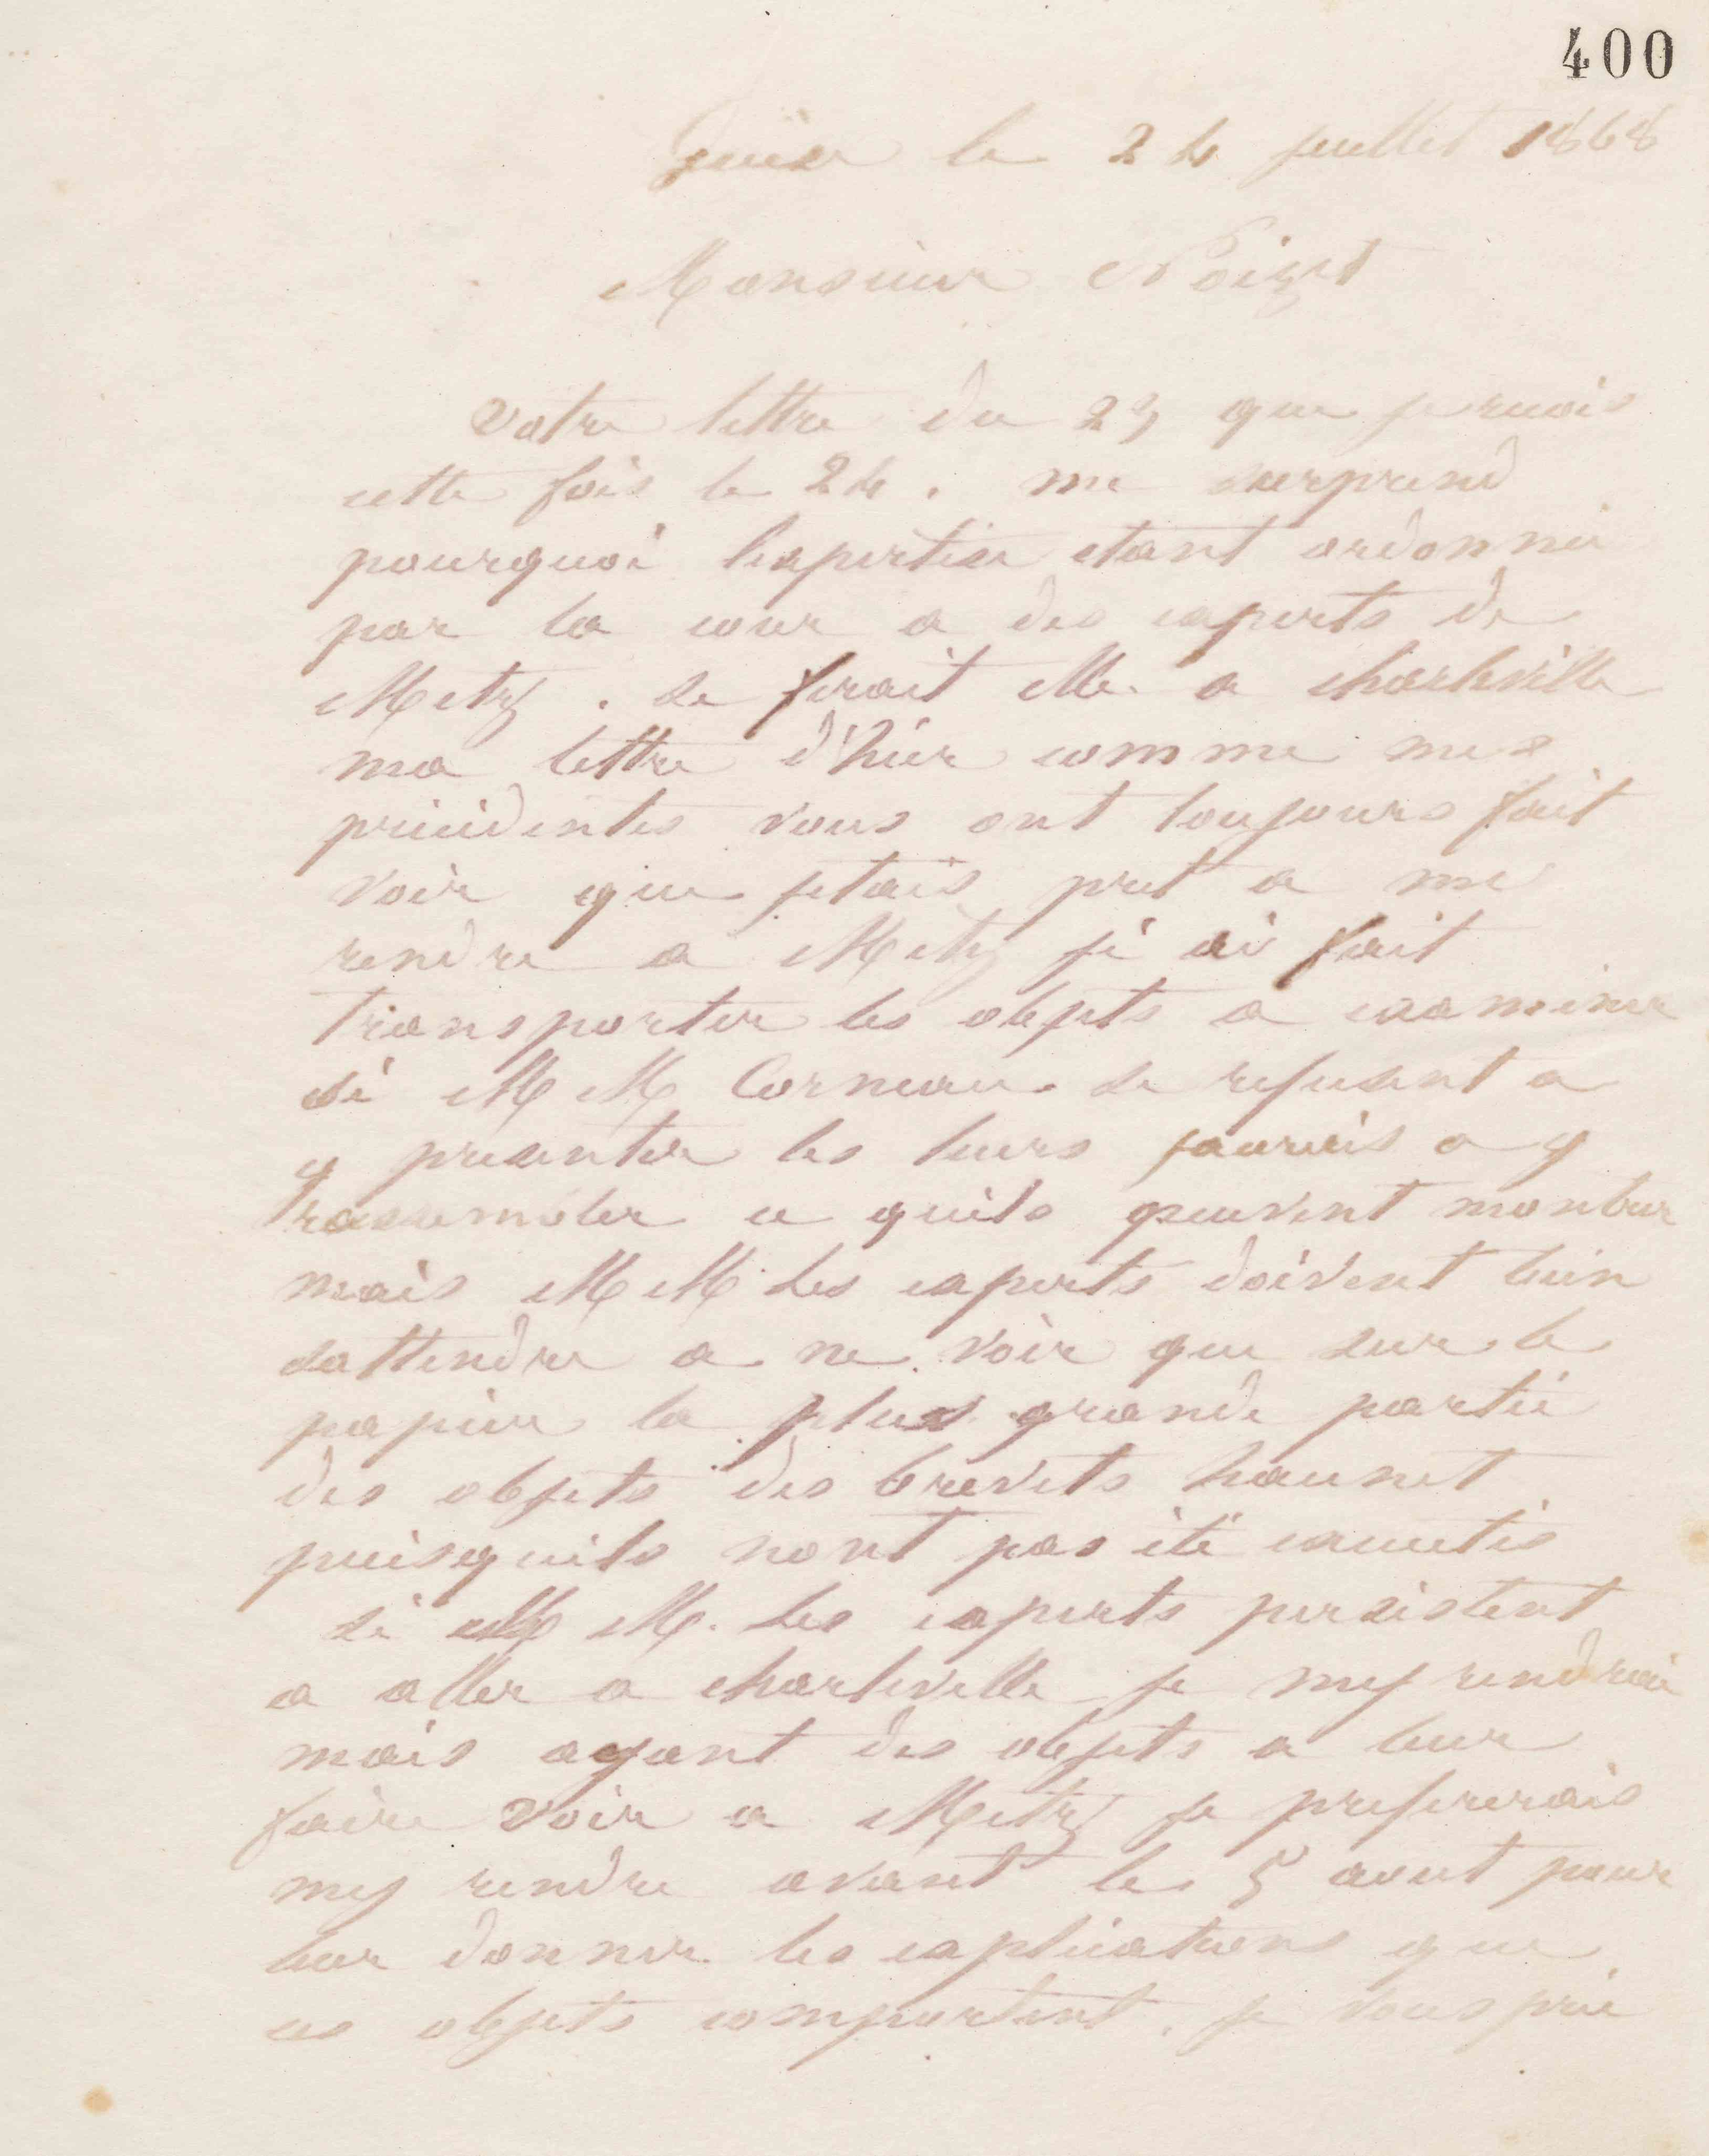 400
Guise le 24 juillet 1868
Monsieur Noizet
Votre lettre du 23 que je reçois
cette fois le 24. me surprend
pourquoi lexpertise etant ordonnée
par la cour a des experts de
Metz. se ferait elle a charleville
ma lettre d'hier comme mes
précédentes vous ont toujours fait
voir que jetais pret a me
rendre a Metz j'y ai fait
transporter les objets a examiner
si MM Corneau se refusent a
y presenter les leurs jaurais a y
rassembler ce quils peuvent montrer
mais MM les experts doivent bien
sattendre a ne voir que sur le
papier la plus grande partie
des objets des brevets haunet
puisquils nont pas été executés
si MM. les experts persistent
a aller a charleville je my rendrai
mais ayant des objets a leur
faire voir a Metz je prefererais
my rendre avant le 5 aout pour
leur donner les explications que
ces objets comportent. je vous prie